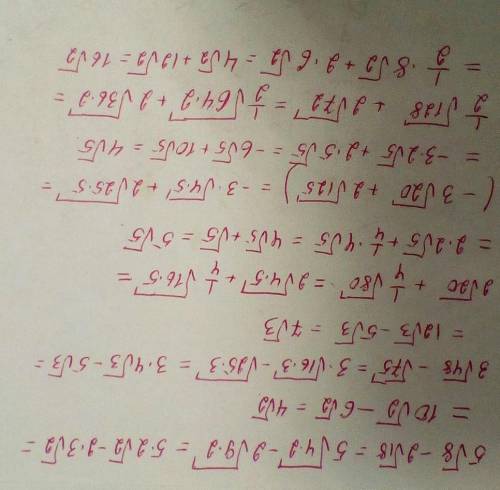 5√8 − 2√18 = 5√4·2 − 2√9·2 = 5·2√2 − 2·3√2 =
= 10√2 − 6√2 = 4√2
3√48 − √75 = 3·√16·3 − √25·3 = 3·4√3 − 5√3 =
= 12√3 − 5√3 = 7√3
2√20 + 1/4 √80 = 2√4·5 + 1/4 √16·5 =
= 2·2√5 + 1/4 · 4√5 = 4√5 + √5 = 5√5
(−3√20 + 2√125) = −3·√4·5 + 2√25·5 =
= −3·2√5 + 2·5√5 = −6√5 + 10√5 = 4√5
1/2 √128 + 2√72 = 1/2 √64·2 + 2√36·2 =
= 1/2 · 8√2 + 2·6√2 = 4√2 + 12√2 = 16√2